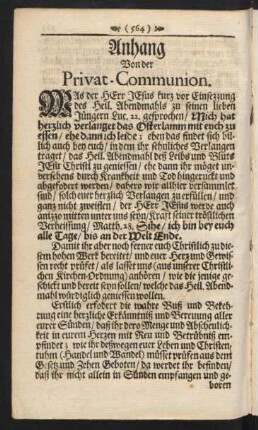 (564)
Anhang
Von der
Privat-Communion.
WAs der HErr JEsus kurz vor Einsetzung
des Heil. Abendmahls zu seinen lieben
Jüngern Luc. 22. gesprochen/ Mich hat
herzlich verlanget das Osterlamm mit euch zu
essen/ ehe dann ich leide: eben das findet sich bil-
lich auch bey euch/ in dem ihr sehnliches Verlangen
traget/ das Heil. Abendmahl deß Leibs und Bluts
JEsu Christi zu geniessen/ ehe dann ihr möget un-
versehens durch Kranckheit und Tod hingeruckt und
abgefodert werden/ dahero wir allhier versammlet
sind/ solch euer herzlich Verlangen zu erfüllen/ und
ganz nicht zweiflen/ der HErr JEsus werde auch
anitzo mitten unter uns seyn/ Krafft seiner tröstlichen
Verheissung/ Matth. 28. Sihe/ ich bin bey euch
alle Tage/ biß an der Welt Ende.
Damit ihr aber noch ferner euch Christlich zu die-
sem hohen Werk bereitet/ und euer Herz und Gewis-
sen recht prüfet/ als lasset uns (aus unserer Christli-
chen Kirchen-Ordnung) anhören/ wie die jenige ge-
schickt und bereit seyn sollen/ welche das Heil. Abend-
mahl würdiglich geniessen wollen.
Erstlich erfodert die wahre Buß und Bekeh-
rung eine herzliche Erkänntniß und Bereuung aller
eurer Sünden/ daß ihr dero Menge und Abscheulich-
keit in eurem Herzen mit Reu und Betrübniß em-
pfindet; wie ihr deßwegen euer Leben und Christen-
thum (Handel und Wandel) müsset prüfen aus dem
Gesetz und Zehen Geboten/ da werdet ihr befinden/
daß ihr nicht allein in Sünden empfangen und ge-
boren